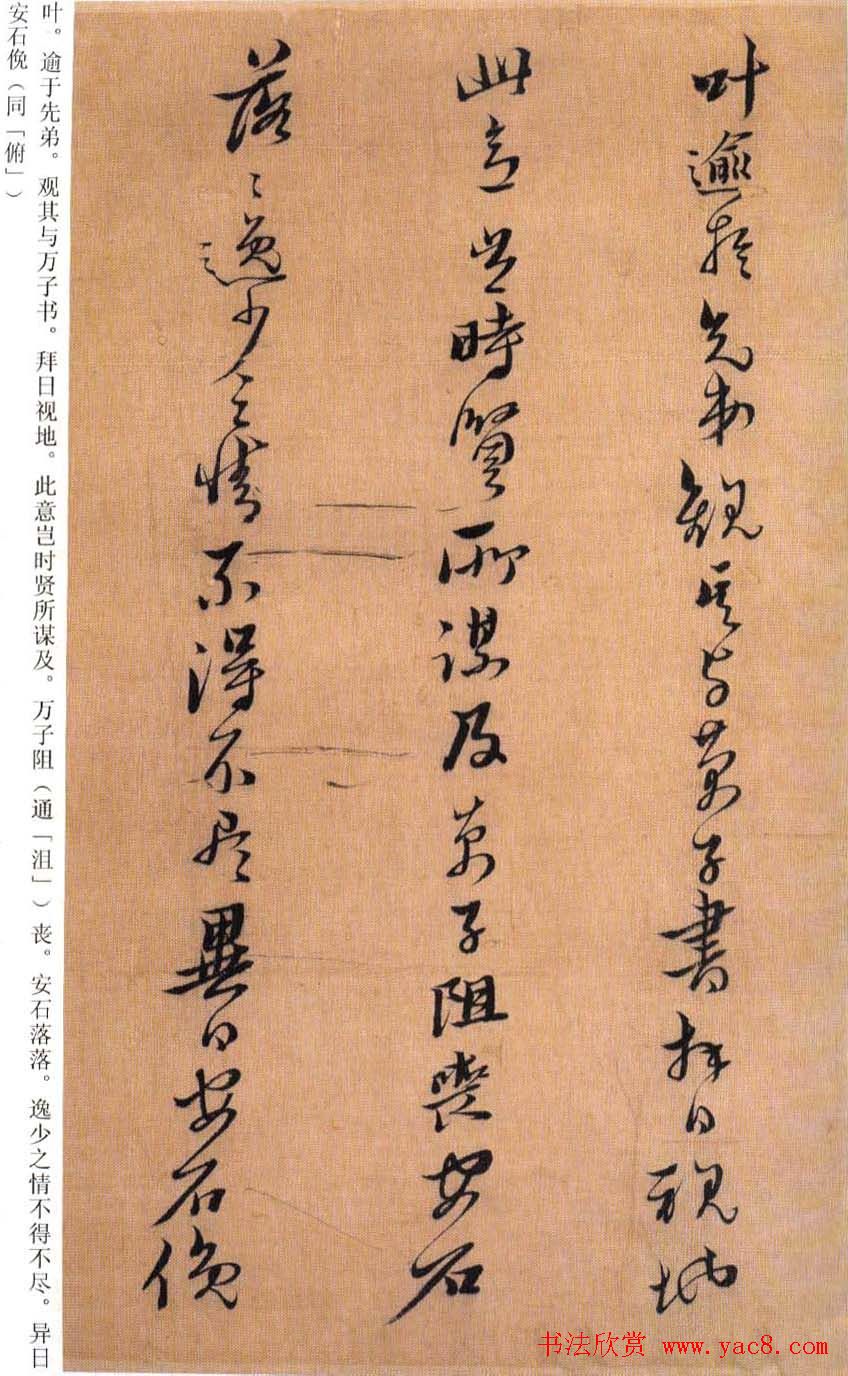 叶逾於先弟觀其与萬子書拜日視地
此意豈時賢所謀及萬子阻喪安石
落〻逸少之情不得不尽異日安石俛
叶。逾于先弟。观其与万子书。拜日视地。此意岂时贤所谋及。万子阻（通「沮」）丧。安石落落。逸少之情不得不尽。异日
安石俛（同「俯」）
书法欣赏 www.yac8.com